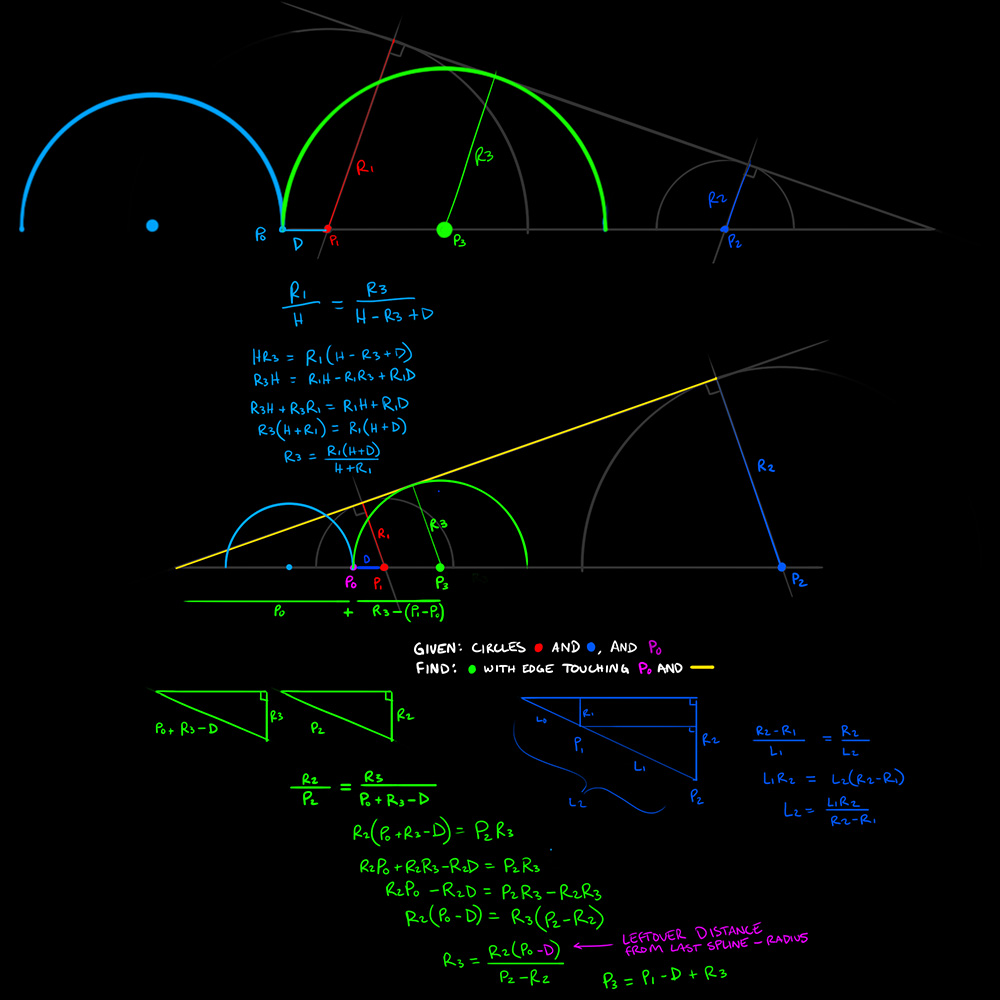 R1
R3
R2
P0
D
P1
P3
P2
R1/H = R3/(H - R3 + D)
HR3 = R1(H - R3 + D)
R3H = R1H - R1R3 + R1D
R3H + R3R1 = R1H + R1D
R3(H + R1) = R1(H + D)
R3 = R1(H+D)/(H+R1)
R2
R1
R3
D
P0
P1
P3
P2
P0 + R3 - (P1 - P0)
GIVEN: CIRCLES AND , AND P0
FIND: WITH EDGE TOUCHING P0 AND
P0 + R3 - D
R3
P2
R2
L0
R1
P1
L1
R2
L2
P2
(R2 - R1)/L1 = R2/L2
L1R2 = L2(R2 - R1)
L2 = L1R2/(R2 - R1)
R2/P2 = R3/(P0 + R3 - D)
R2(P0 + R3 - D) = P2R3
R2P0 + R2R3 - R2D = P2R3
R2P0 - R2D = P2R3 - R2R3
R2(P0 - D) = R3(P2 - R2)
R3 = R2(P0 - D)/(P2 - R2)
LEFTOVER DISTANCE
FROM LAST SPLINE - RADIUS
P3 = P1 - D + R3